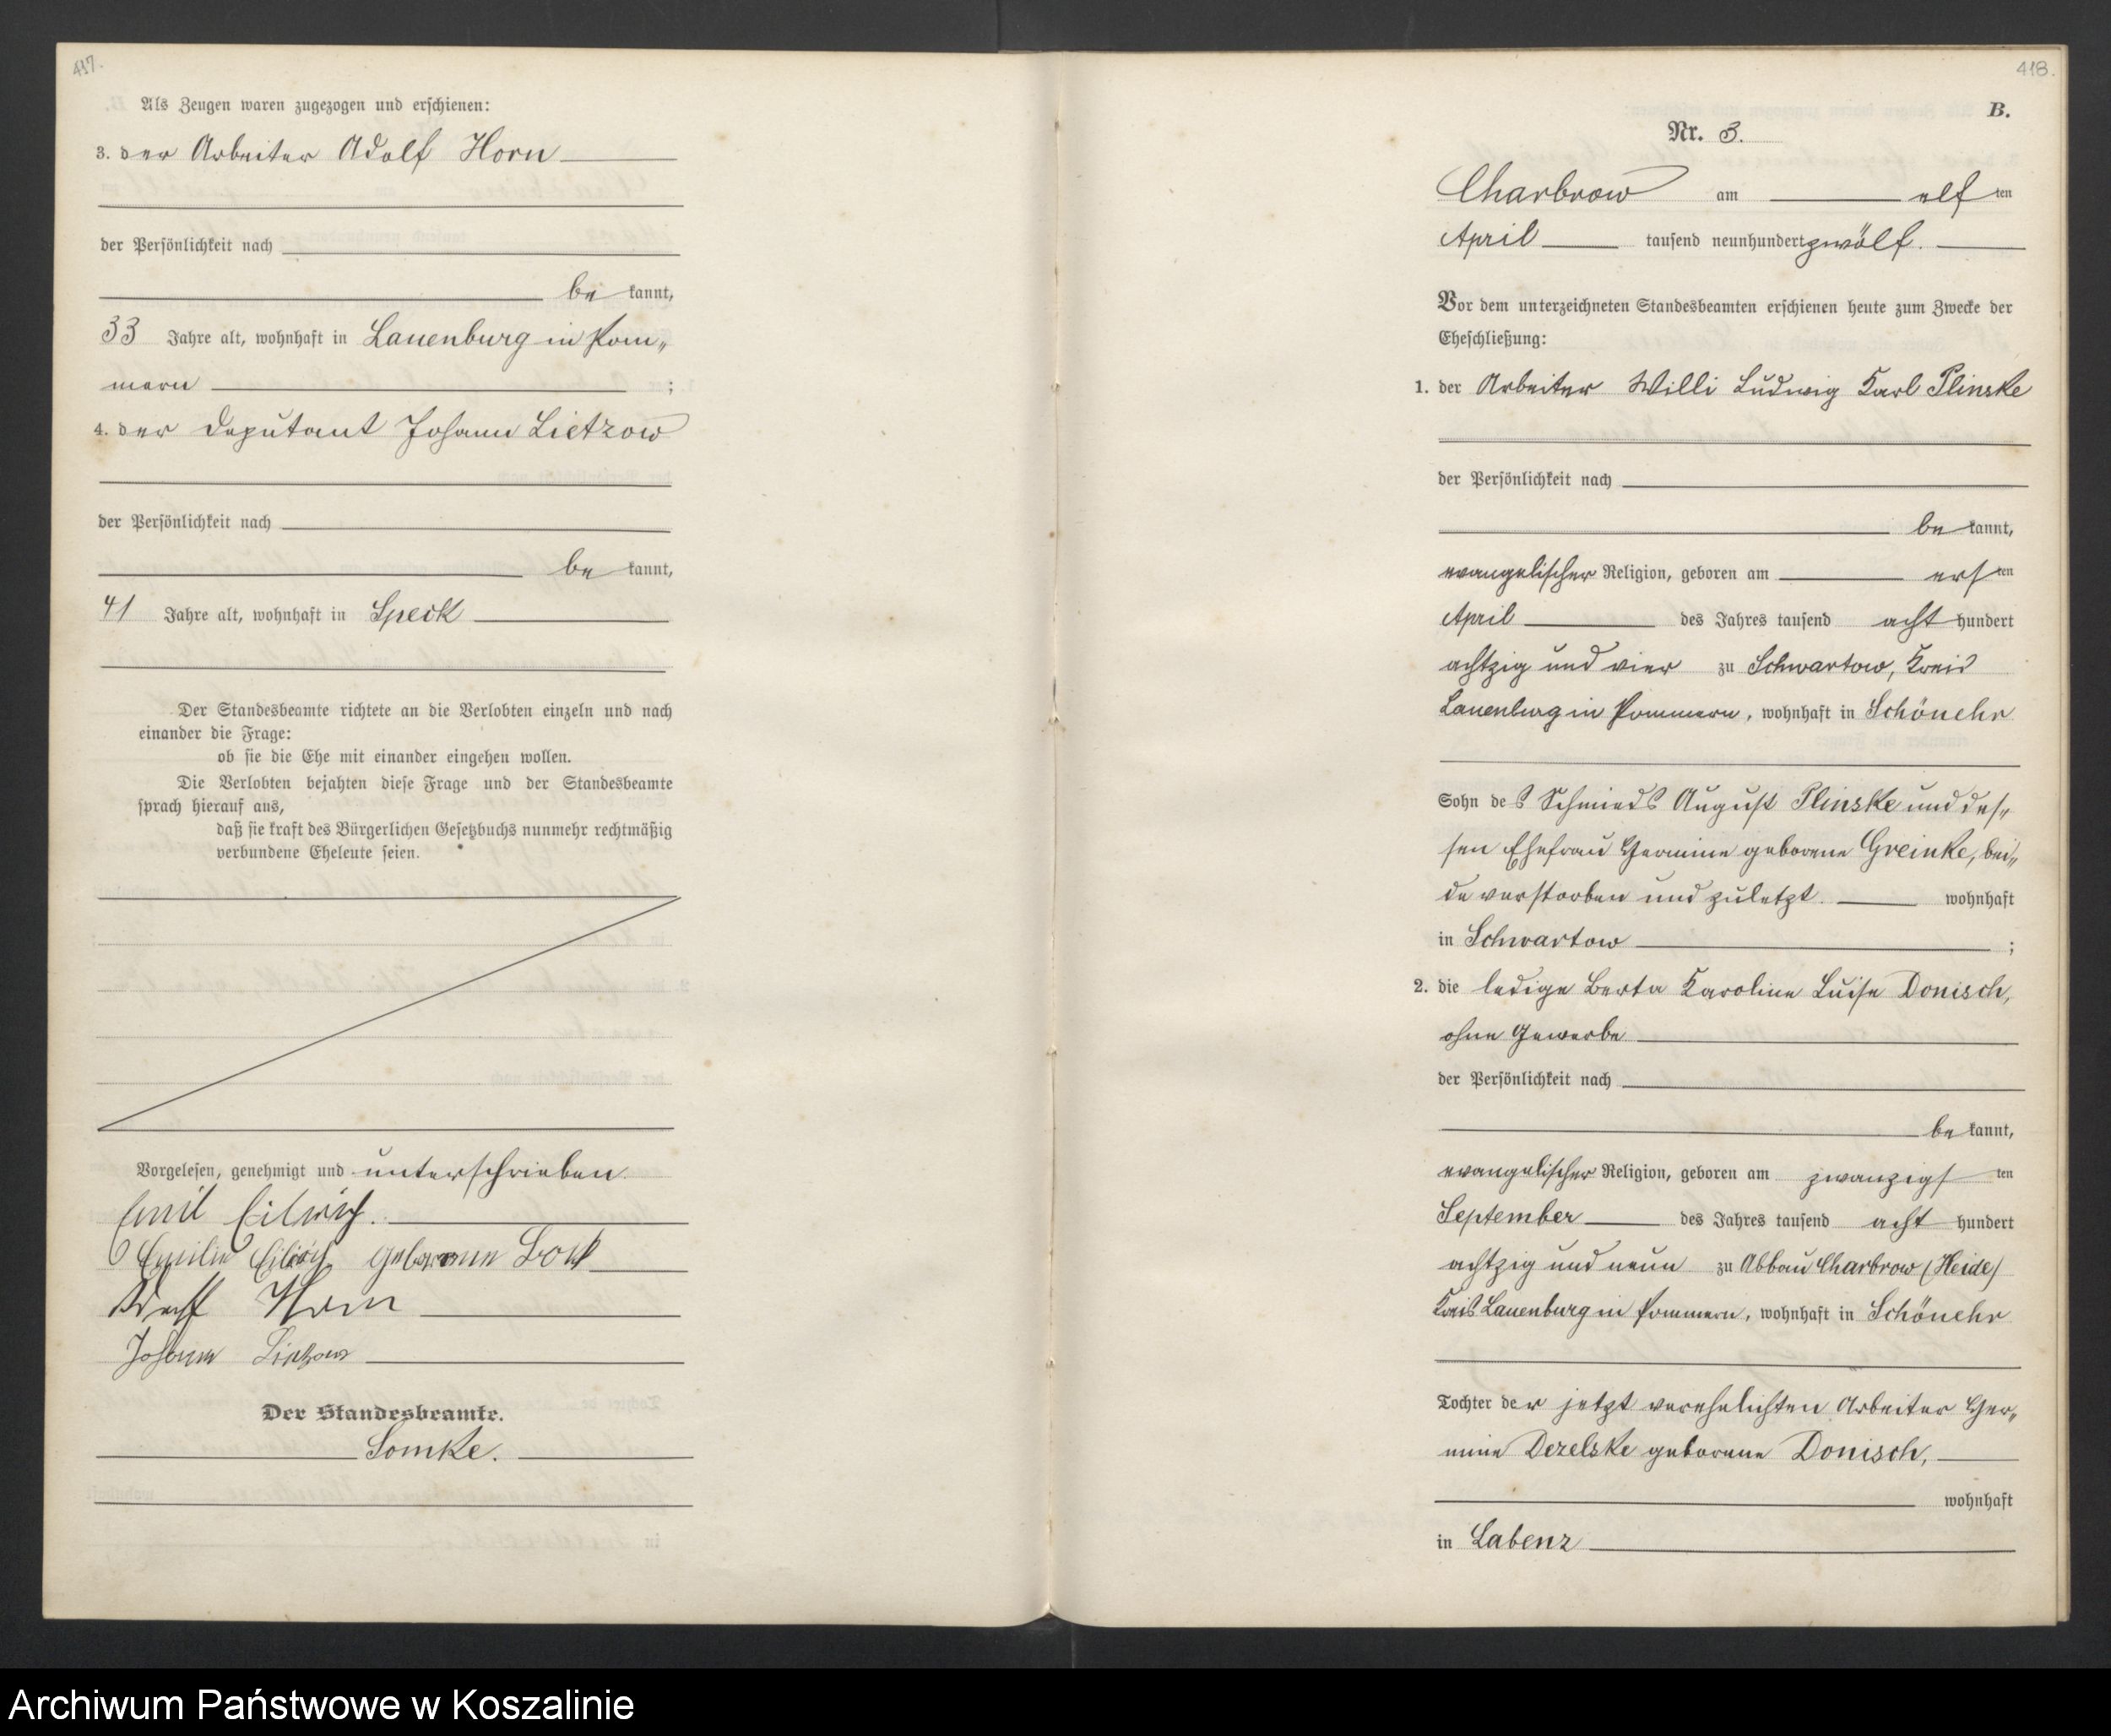 417.
Als Zeugen waren zugezogen und erschienen:
3. der Arbeiter Adolf Horn
der Persönlichkeit nach
be kannt,
33 Jahre alt, wohnhaft in Lauenburg in Pom„
mern ;
4. der Deputant Johann Lietzow
der Persönlichkeit nach
be kannt,
41 Jahre alt, wohnhaft in Speck
Der Standesbeamte richtete an die Verlobten einzeln und nach
einander die Frage:
ob sie die Ehe mit einander eingehen wollen.
Die Verlobten bejahten diese Frage und der Standesbeamte
sprach hierauf aus,
daß sie kraft des Bürgerlichen Gesetzbuchs nunmehr rechtmäßig
verbundene Eheleute seien.
Vorgelesen, genehmigt und unterschrieben.
Emil
Emilie geborene
Adolf Horn
Johann Lietzow
Der Standesbeamte.
Somke.
418.
B.
Nr. 3.
Charbrow am elf ten
April tausend neunhundert zwölf.
Vor dem unterzeichneten Standesbeamten erschienen heute zum Zwecke der
Eheschließung:
1. der Arbeiter Willi Ludwig Karl Plinske
der Persönlichkeit nach
be kannt,
evangelischer Religion, geboren am ers ten
April des Jahres tausend acht hundert
achtzig und vier zu Schwartow, Kreis
Lauenburg in Pommern, wohnhaft in Schönehr
Sohn des Schmieds August Plinske und des„
sen Ehefrau Hermine geborene Greinke, bei„
de verstorben und zuletzt wohnhaft
in Schwartow ;
2. die ledige Berta Karoline Luise Donisch,
ohne Gewerbe
der Persönlichkeit nach
be kannt,
evangelischer Religion, geboren am zwanzigs ten
September des Jahres tausend acht hundert
achtzig und neun zu Abbau Charbrow (Heide)
Kreis Lauenburg in Pommern, wohnhaft in Schönehr
Tochter der jetzt verehelichten Arbeiter Her„
mine Dezelske geborene Donisch,
wohnhaft
in Labenz
Archiwum Państwowe w Koszalinie